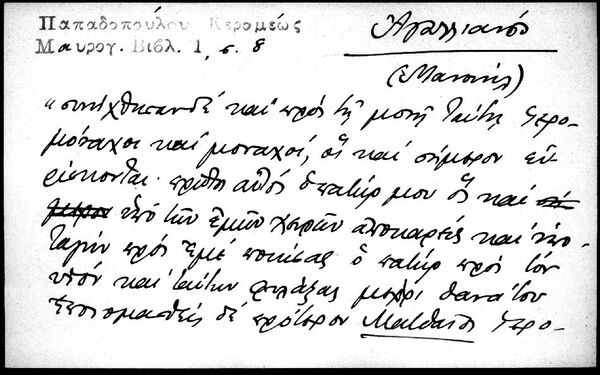 Παπαδοπούλου Κεραμέως
Μαυρογ. Βιβλ. 1, σ. 8
Ἀγαλλιανὸς
(Μανουὴλ)
"συνήχθησαν δὲ καὶ πρὸς τῇ μονῇ ταύτῃ ἱερο-
μόναχοι καὶ μοναχοί, οἳ καὶ σήμερον εὑ-
ρίσκονται· πρῶτος αὐτὸς ὁ πατήρ μου ὃς καὶ
ὑπὸ τῶν ἐμῶν χειρῶν ἀποκαρεὶς καὶ ὑπο-
ταγὴν πρὸς ἐμὲ ποιήσας ὁ πατὴρ πρὸς τὸν
υἱὸν καὶ ταύτην φυλάξας μέχρι θανάτου
μετονομασθεὶς δὲ πρότερον Ματθαῖος ἱερο-